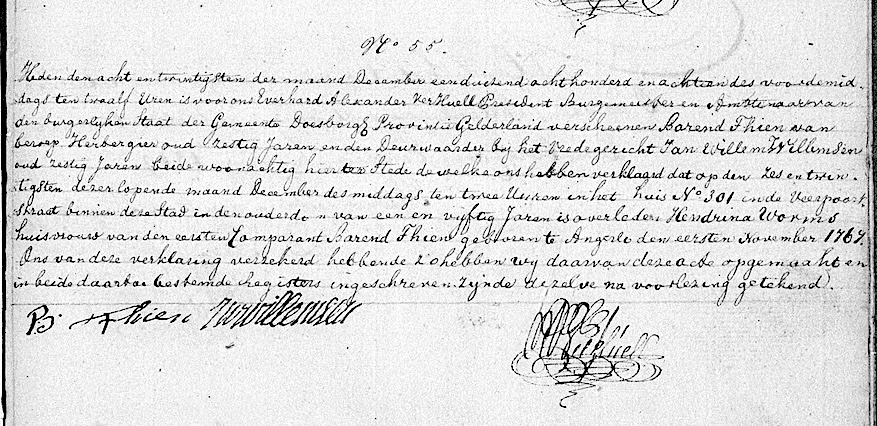 No 55.
Heden den acht en twintigsten der maand December eenduizend achthonderd en achttien des voordemid-
dags ten twaalf Uren is voor ons Everhard Alexander VerHuell President Burgemeester en Ambtenaar van
den burgerlyken Staat der Gemeente Doesborgh Provintie Gelderland verscheenen Barend Thien van
beroep Herbergier oud zestig Jaren en den Deurwaarder by het Vredegericht Jan Willem Willemsen
oud zestig Jaren beide woonachtig hier ter Stede de welke ons hebben verklaard dat op den zes en twin-
tigsten dezer lopende maand December des middags ten twee Uuren in het huis No 301 in de Veerpoort
straat binnen deze Stad in den ouderdom van een en vyftig Jaren is overleden Hendrina Worms
huisvrouw van den eersten Comparant Barend Thien geboren te Angerlo den eersten November 1767.
Ons van deze verklaring verzekerd hebbende zo hebben wy daarvan deze acte opgemaakt en
in beide daartoe bestemde Registers ingeschreven zynde dezelve na voorlezing getekend.
B: Thien JWWillemsen
VerHuell